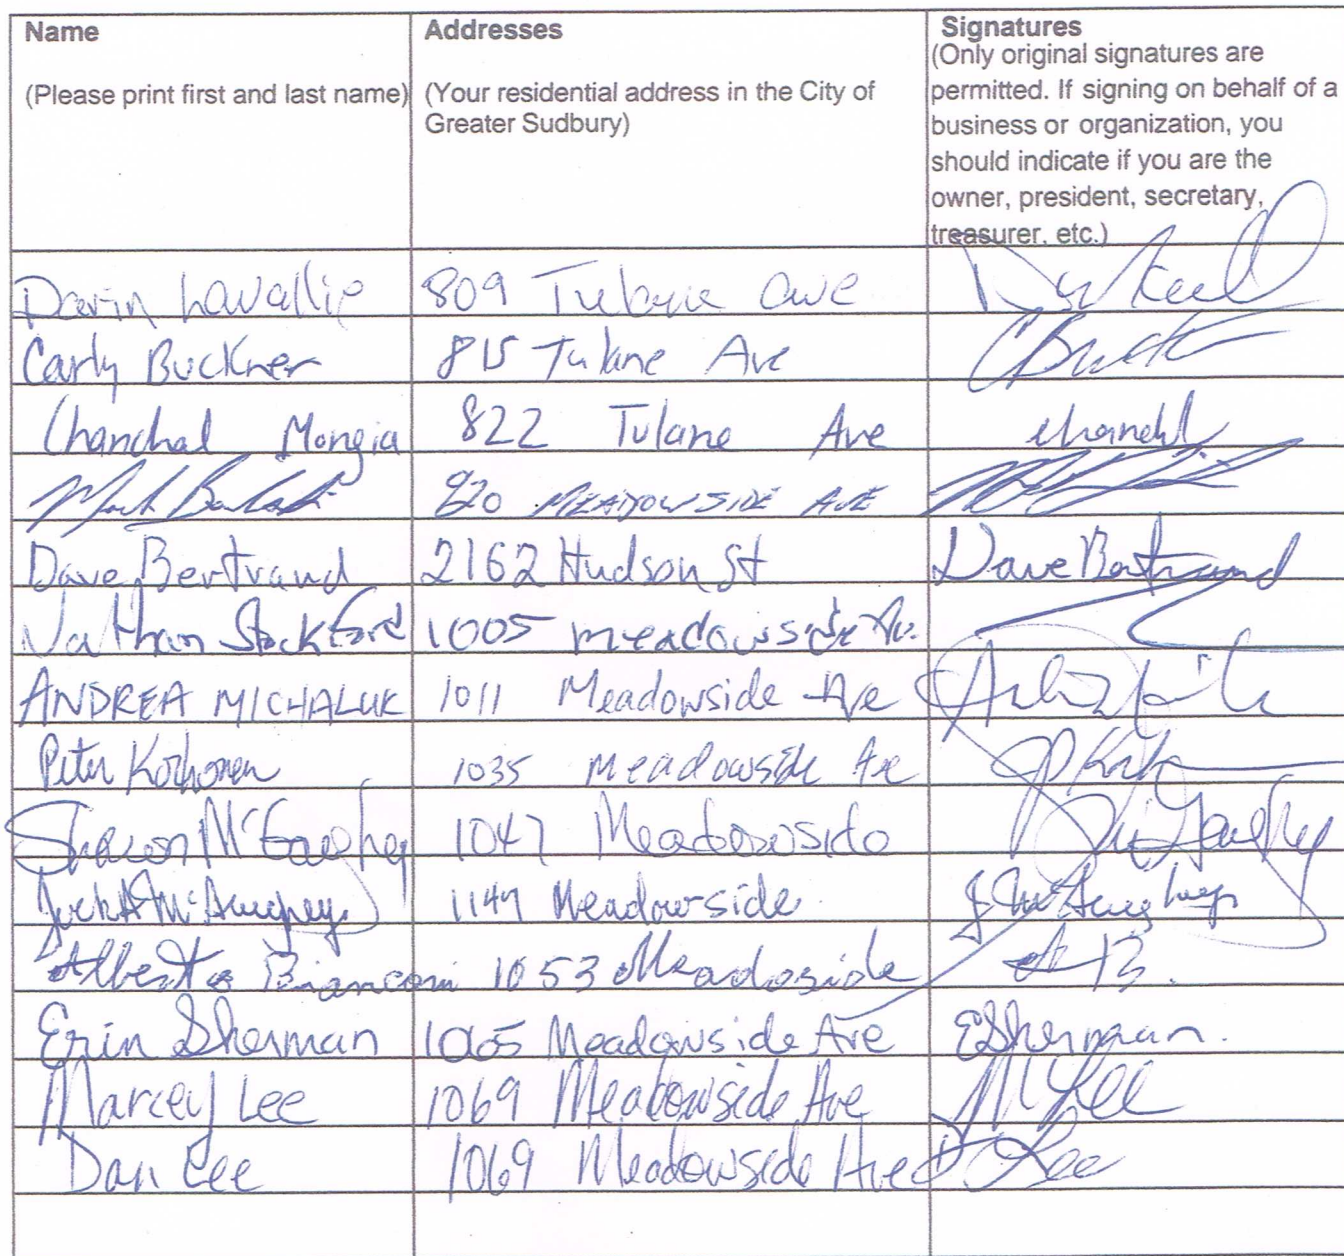 Name
(Please print first and last name)
Addresses
(Your residential address in the City of
Greater Sudbury)
Signatures
(Only original signatures are
permitted. If signing on behalf of a
business or organization, you
should indicate if you are the
owner, president, secretary,
treasurer, etc.)
Darin Lavallie 809 Tulane Ave
Carly Buckner 815 Tulane Ave
Chanchal Mongia 822 Tulane Ave Chanchal
Mark MEADOWSIDE AVE
Dave Bertrand 2162 Hudson St Dave Bertrand
Nathan Stockford 1005 meadowside Av.
ANDREA MICHALUK 1011 Meadowside Ave
Peter Korhonen 1035 Meadowside Ave
Sharon McGaughey 1047 Meadowside
McGaughey Meadowside
Alberto Bianconi 1053 Meadoside AB.
Erin Sherman Meadowside Ave ESherman.
Marcey Lee 1069 Meadowside Ave M Lee
Dan Lee 1069 Meadowside Ave D Lee